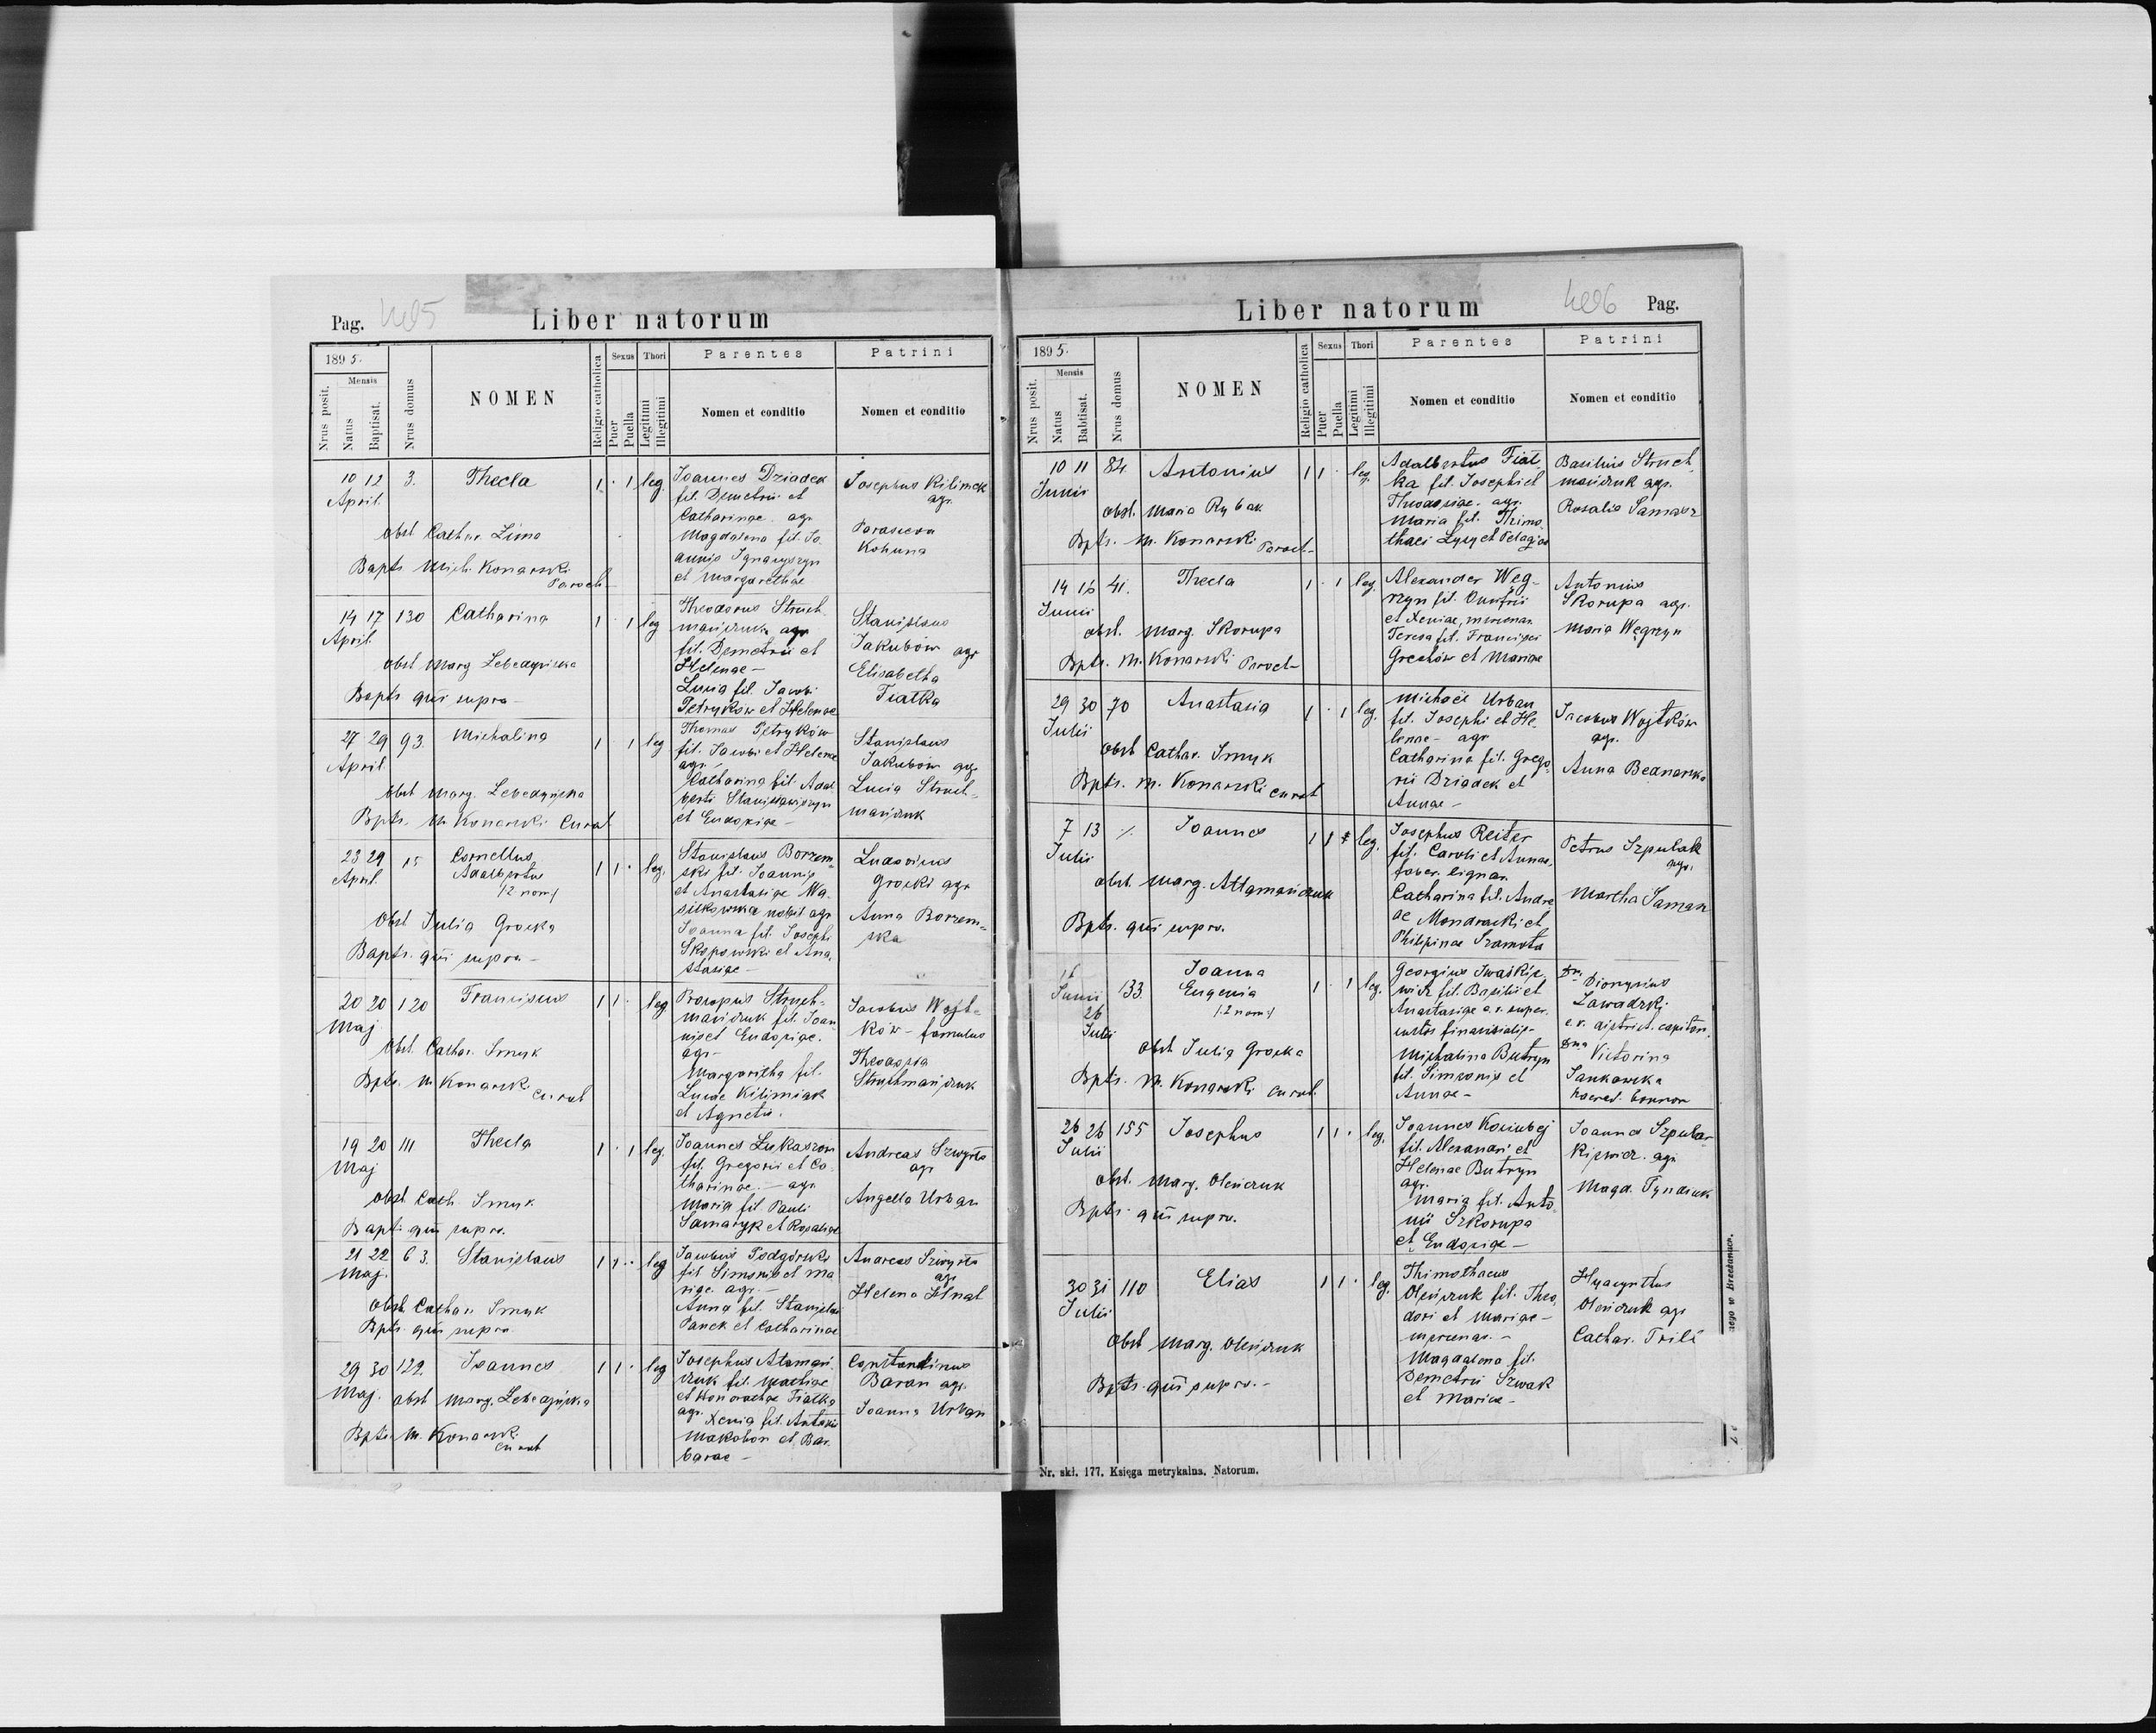 Pag.
Liber natorum
1895.
Nrus posit.
Mensis
Natus
Baptisat.
Nrus domus
NOMEN
Religio catholica
Sexus
Puer
Puella
Thori
Legitimi
Illegitimi
Parentes
Nomen et conditio
Patrini
Nomen et conditio
10 12 3. Thecla 1 · 1 leg.
April.
obst Cathar. Zima
Bapts Mich. Konarski
Paroch
Joannes Dziadek
fil. Demetrii et
Catharinae. agr.
Magdalena fil. Jo
annis Ignaryszyn
et Margarethae
Josephus Kilimek
agr.
Parasceva
Kohuna
14 17 130 Catharina 1 · 1 leg
April.
obst Marg Lebedyńska
Bapts qui supra -
Theodorus Struch
mańczuk agr
fil. Demetrii et
Helenae -
Lucia fil. Jacobi
Petryków et Helenae
Stanislaus
Jakubów agr
Elisabetha
Fiatka
27 29 93. Michalina 1 1 leg
April
obst Marg. Lebedyńska
Bpts. M Konarski Curat
Thomas Petryków
fil. Jacobi et Helenae
agr
Catharina fil. Adal
berti Stanisławiszyn
et Eudoxiae -
Stanislaus
Jakubów agr
Lucia Struch-
mańczuk
23 29 15 Cornellus 1 1 · leg.
April. Adalbertus
/2 nom/
Obst Julia Grocka
Bapts. qui supra -
Stanislaus Borzem-
ski fil. Joannis
et Anastasiae Wa-
silkowska nobil agr
Joanna fil. Josephi
Skopowski et Ana-
stasiae -
Ludovicus
Grocki agr
Anna Borzem-
ska
20 20 120 Franciscus 1 1 · leg
Maj
Obst. Cathar. Smyk
Bpts. M Konarski
Curat
Procopus Struch-
mańczuk fil. Joan
nis et Eudoxiae.
agr -
Margaritha fil.
Lucae Kilimiak
et Agnetis.
Jacobus Wojt-
ków - famulus
Theodosia
Struchmańczuk
19 20 111 Thecla 1 · 1 leg.
Maj
obst. Cath. Smyk
Bapts qui supra.
Joannes Lukaszow
fil. Gregorii et Ca-
tharinae. - agr
Maria fil. Pauli
Samaryk et Rosaliae
Andreas Szwyrlo
agr
Angella Urban
21 22 63. Stanislaus 1 1 · leg
Maj.
Obst. Cathar. Smyk
Bpts qui supra
Jacobus Podgórski
fil Simonis et Ma
riae agr. -
Anna fil. Stanislai
Panek et Catharinae
Andreas Szwyrlo
agr
Helena Hnat
29 30 122. Joannes 1 1 · leg
Maj.
obst Marg. Lebedyńska
Bpts. M. Konarski
Curat
Josephus Atamań
czuk fil. Mathiae
et Honorathae Fiatka
agr.
Xenia fil. Antonii
Makohon et Bar
barae -
Constantinus
Baran agr.
Joanna Urban
Liber natorum
406 Pag.
1895.
Nrus posit.
Mensis
Natus
Babtisat.
Nrus domus
NOMEN
Religio catholica
Sexus
Puer
Puella
Thori
Legitimi
Illegitimi
Parentes
Nomen et conditio
Patrini
Nomen et conditio
10 11 84 Antonius 1 1 · leg.
Junii
obst. Maria Rybak
Bpts. M. Konarski Paroch-
Adalbertus Fiat-
ka fil. Josephi et
Theodosiae. agr.
Maria fil. Thimo
thaei Lysy et Pelagiae
Basilius Struch
mańczuk agr.
Rosalia Samasz
14 16 41. Thecla 1 · 1 leg.
Junii
obst. Marg. Skorupa
Bpts. M. Konarski Paroch-
Alexander Węg-
rzyn fil. Onufrii
et Xeniae, mercenar.
Teresa fil. Francisci
Grechów et Mariae
Antonius
Skorupa agr.
Maria Węgrzyn
29 30 70 Anastasia 1 · 1 leg.
Julii
Obst Cathar. Smyk
Bpts. M. Konarski Curat
Michaël Urban
fil. Josephi et He-
lenae - agr
Catharina fil. Grego
rii Dziadek et
Annae -
Jacobus Wojtków
agr.
Anna Bednarska
7 13 Joannes 1 1 leg.
Julii
obst. Marg. Attamańczuk
Bpts. qui supra.
Josephus Reiter
fil. Caroli et Annae,
faber. lignar.
Catharina fil. Andre
ae Mondracki et
Philipinae Szamota
Petrus Szpulak
agr.
Martha Saman
16
Junii 133 Joanna
Eugenia 1 · 1 leg.
26 /2 nom/
Julii
Obst Julia Grocka
Bpts. M. Konarski Curat.
Georgius Iwaśkie
wicz fil. Basilii et
Anastasiae c.r. super.
custos financialis -
Michalina Butryn
fil. Simeonis et
Annae -
Dnus Dionysius
Zawadzki
c.r. district. capitan.
Dna Victorina
Jankowska
haered. bonnor
26 26 155 Josephus 1 1 · leg.
Julii
Obst. Marg. Oleńczuk
Bpts. qui supra.
Joannes Kociubej
fil. Alexandri et
Helenae Butryn
agr.
Maria fil. Anto-
nii Szkorupa
et Eudoxiae -
Joannes Szpular
kiewicz. agr.
Magd. Tyndiuk
30 31 110 Elias 1 1 · leg.
Julii
Obst Marg. Oleńczuk
Bpts. qui supra. -
Thimothaeus
Oleńczuk fil. Theo
dori et Mariae -
mercenar. -
Magdalena fil.
Demetrii Szwak
et Maria -
Hyacynthus
Oleńczuk agr
Cathar. Trili
Nr. skł. 177. Księga metrykalna. Natorum.
nego w Brzeżanach.